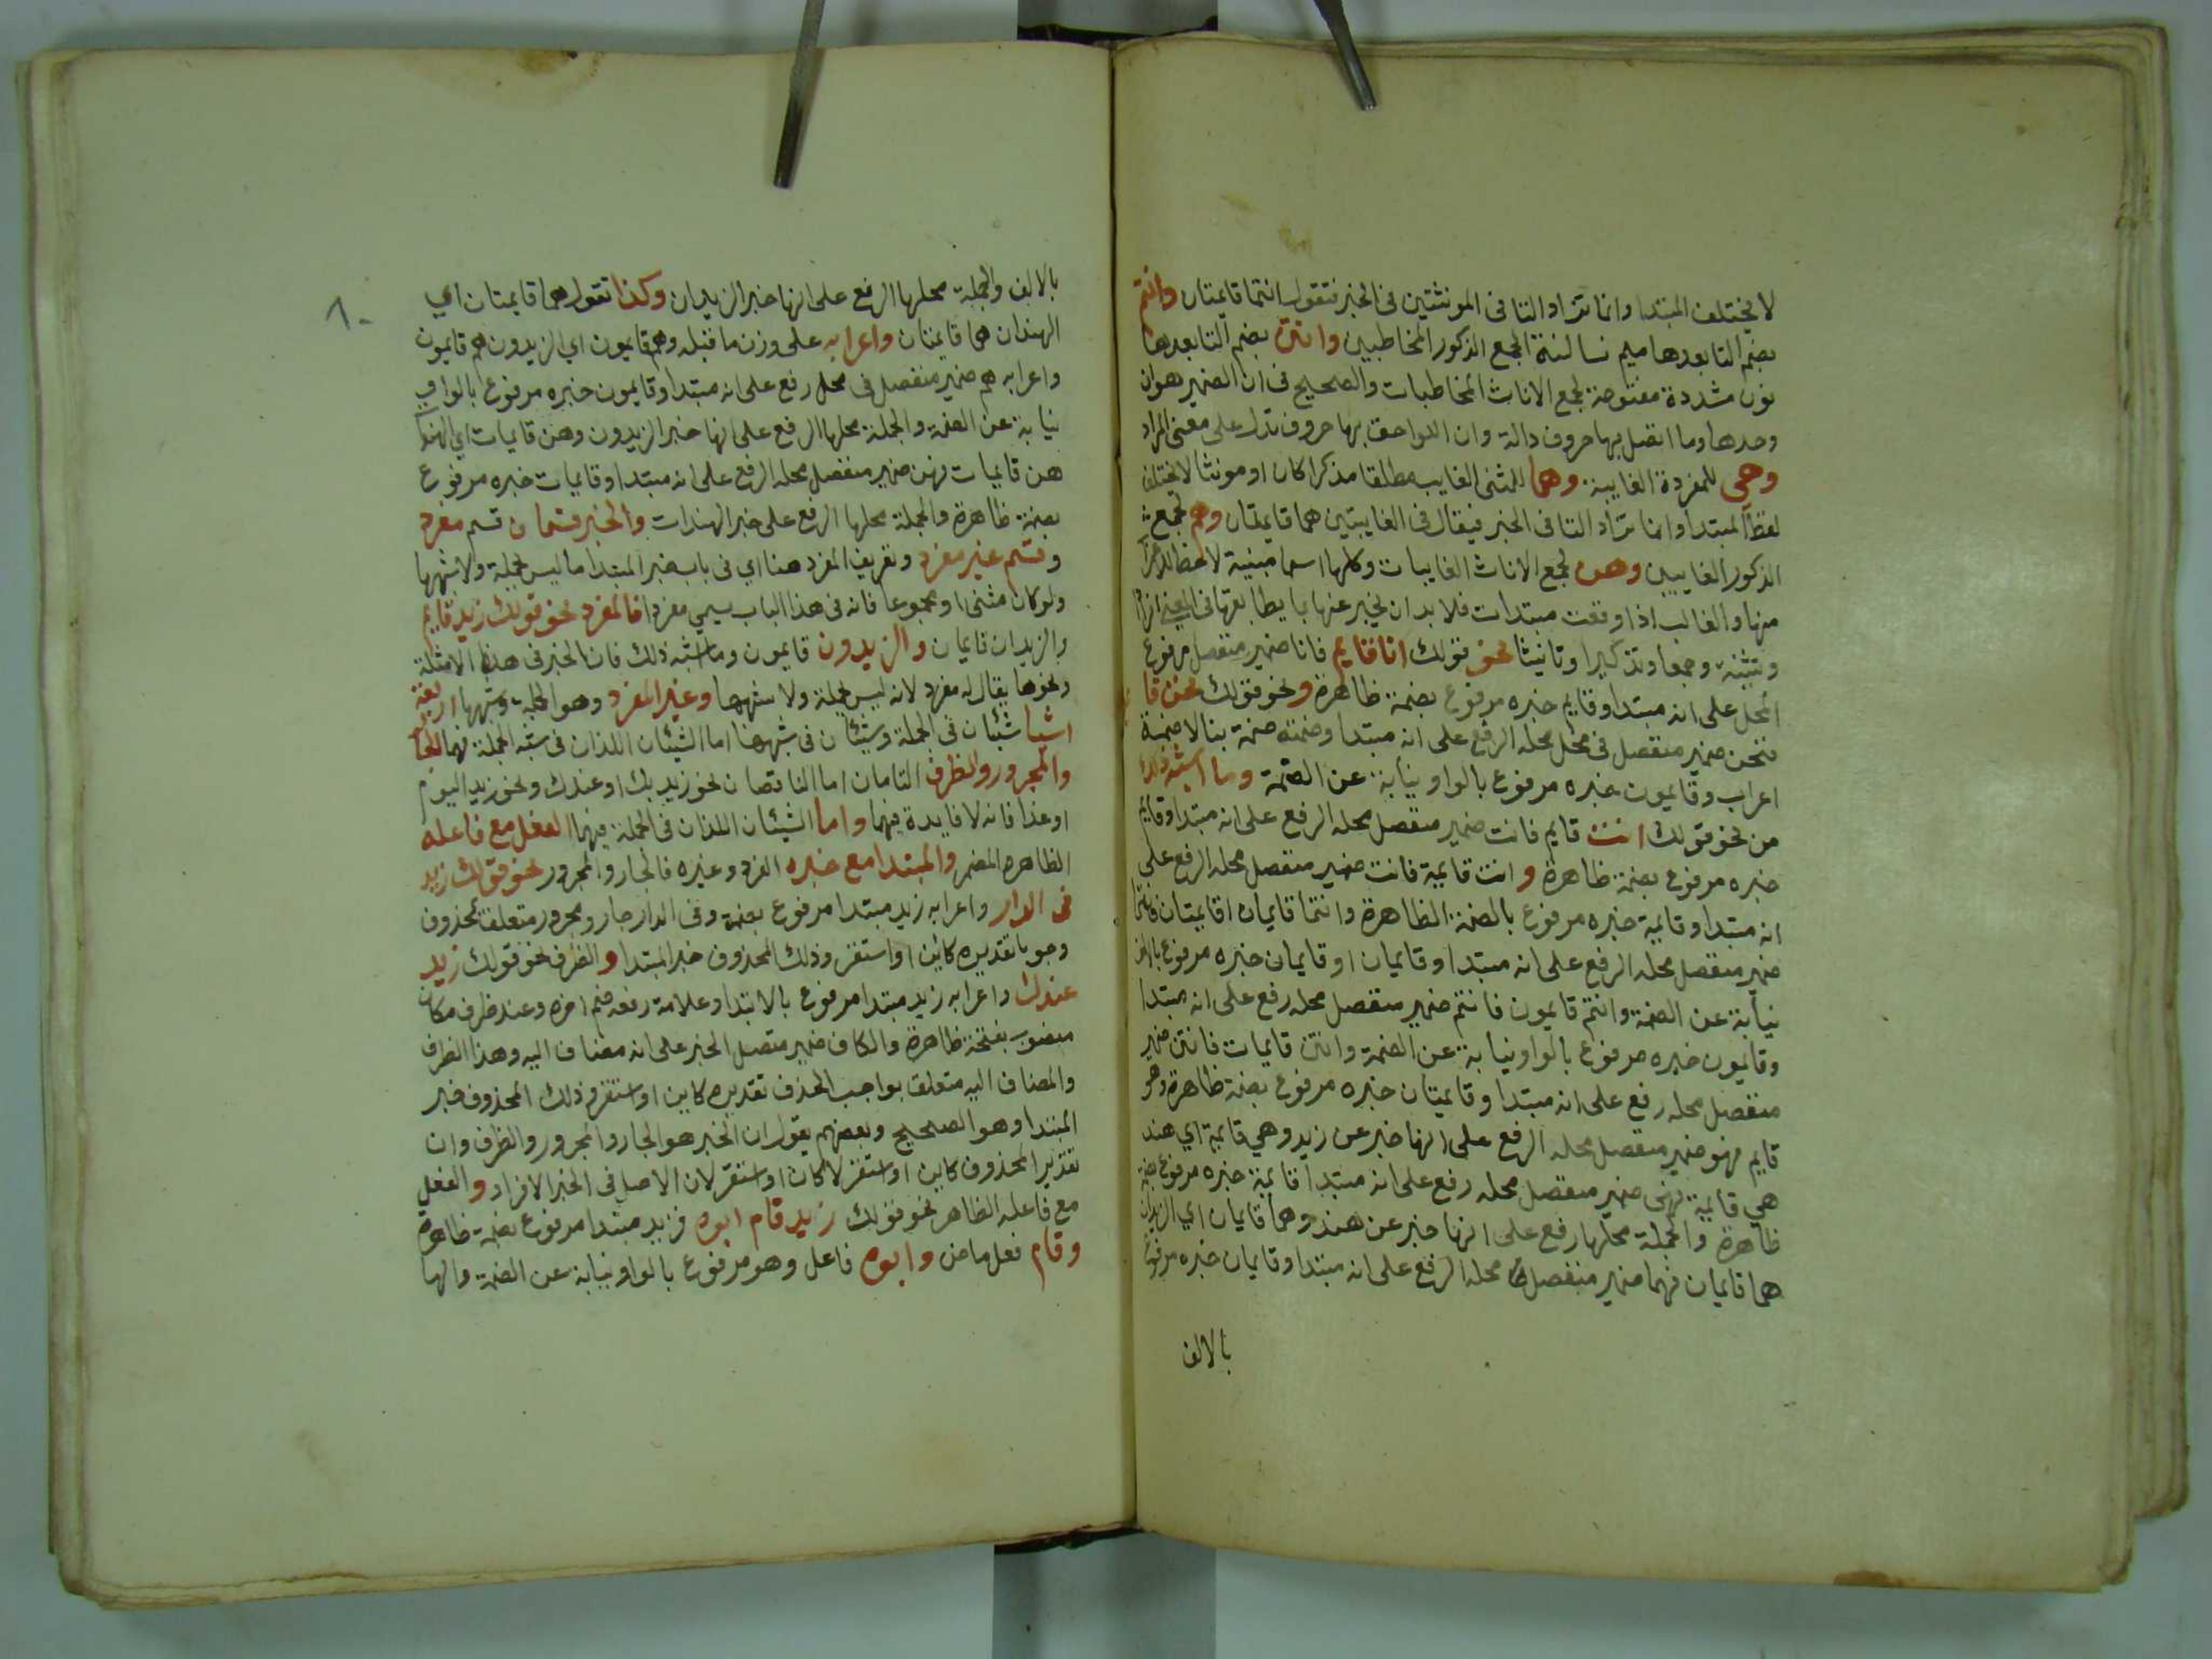 لا يختلف المبتدا وانما تزاد التا فى المونثتين فى الخبر فتقول انتما قايمتان وانتم
بضم التا بعدها ميم ساكنة لجمع الذكور المخاطبين وانتن بضم التا بعدها
نون مشددة مفتوحة لجمع الاناث المخاطبات والصحيح فى ان الضمير هو ان
وحدها وما اتصل بها حروف دالة وان اللواحق بها حروف تدل على معنى المراد
وهي للمفردة الغايبة وهما للمثنى الغايب مطلقا مذكرا كان او مونثا لا يختلف
لفظ المبتدا وانما تزاد التا فى الخبر فيقال فى الغايبتين هما قايمتان وهم لجمع
الذكور الغايبين وهن لجمع الاناث الغايبات وكلها اسما مبنية لا
منها والغالب اذا وقعت مبتدات فلا بد ان يخبر عنها بما يطابقها فى المعنى
وتثنية وجمعا وتذكيرا وتانيثا نحو قولك انا قايم فانا ضمير منفصل مرفوع
المحل على انه مبتدا وقايم خبره مرفوع بضمة ظاهرة ونحو قولك نحن قا
فنحن ضمير منفصل فى محل محله الرفع على انه مبتدا وضمته ضمة بنا لا ضمة
اعراب وقايمون خبره مرفوع بالواو نيابة عن الضمة وما اشبه ذلك
من نحو قولك انت قايم فانت ضمير منفصل محله الرفع على انه مبتدا وقايم
خبره مرفوع بضمة ظاهرة وانت قايمة فانت ضمير منفصل محله الرفع على
انه مبتدا وقايمة خبره مرفوع بالضمة الظاهرة وانتما قايمان اقايمتان فانتما
ضمير منفصل محله الرفع على انه مبتدا وقايمان او قايمان خبره مرفوع بالالف
نيابة عن الضمة وانتم قايمون فانتم ضمير منفصل محله رفع على انه مبتدا
وقايمون خبره مرفوع بالواو نيابة عن الضمة وانتن قايمات فانتن ضمير
منفصل محله رفع على انه مبتدا وقايمتان خبره مرفوع بضمة ظاهرة وهو
قايم فهو ضمير منفصل محله الرفع على انها خبر عن زيد وهي قايمة اي هند
هي قايمة فهى ضمير منفصل محله رفع على انه مبتدا قايمة خبره مرفوع بضمة
ظاهرة والجملة محلها رفع على انها خبر عن هند وهما قايمان اي الزيدان
هما قايمان فهما ضمير منفصل محله الرفع على انه مبتدا وقايمان خبره مرفوع
بالالف
١٠
بالالف والجملة محلها الرفع على انها خبر الزيدان وكذا تقول هما قايمتان اي
الهندان هما قايمتان واعرابه على وزن ما قبله وهم قايمون اي الزيدون هم قايمون
واعرابه هم ضمير منفصل فى محل رفع على انه مبتدا وقايمون خبره مرفوع بالواو
نيابة عن الضمة والجملة محلها الرفع على انها خبر الزيدون وهن قايمات اي الهندات
هن قايمات فهن ضمير منفصل محله الرفع على انه مبتدا وقايمات خبره مرفوع
بضمة ظاهرة والجملة محلها الرفع على خبر الهندات والخبر قسمان قسم مفرد
وقسم غير مفرد وتعريف المفرد هنا اي فى باب خبر المبتدا ما ليس جملة ولا شبهها
ولو كان مثنى او مجموعا فانه فى هذا الباب يسمى مفردا فالمفرد نحو قولك زيد قايم
والزيدان قايمان والزيدون قايمون وما اشبه ذلك فان الخبر فى هذه الامثلة
ونحوها يقال له مفرد لانه ليس جملة ولا شبهها وغير المفرد وهو الجملة وشبهها اربعة
اشيا شيئان فى الجملة وشيئان فى شبهها اما الشيئان اللذان فى شبه الجملة فهما الجار
والمجرور والظرف التامان اما الناقصان نحو زيد بك او عندك ونحو زيد اليوم
او غدا فانه لا فايدة فيهما واما الشيئان اللذان فى الجملة فهما الفعل مع فاعله
الظاهر المضمر والمبتدا مع خبره المفرد وغيره فالجار والمجرور نحو قولك زيد
فى الدار واعرابه زيد مبتدا مرفوع بضمة وفى الدار جار ومجرور متعلق بمحذوف
وجوبا تقديره كاين او استقر وذلك المحذوف خبر المبتدا والظرف نحو قولك زيد
عندك واعرابه زيد مبتدا مرفوع بالابتدا وعلامة رفعه ضم اخره وعند ظرف مكان
منصوب بفتحة ظاهرة والكاف ضمير متصل الخبر على انه مضاف اليه وهذا الظرف
والمضاف اليه متعلق بواجب الحذف تقديره كاين او استقر وذلك المحذوف خبر
المبتدا وهو الصحيح وبعضهم يقول ان الخبر هو الجار والمجرور والظرف وان
تقدير المحذوف كاين او استقر لا كان او استقر لان الاصل فى الخبر الافراد والفعل
مع فاعله الظاهر نحو قولك زيد قام ابوه فزيد مبتدا مرفوع بضمة ظاهرة
وقام فعل ماض وابوه فاعل وهو مرفوع بالواو نيابة عن الضمة والها